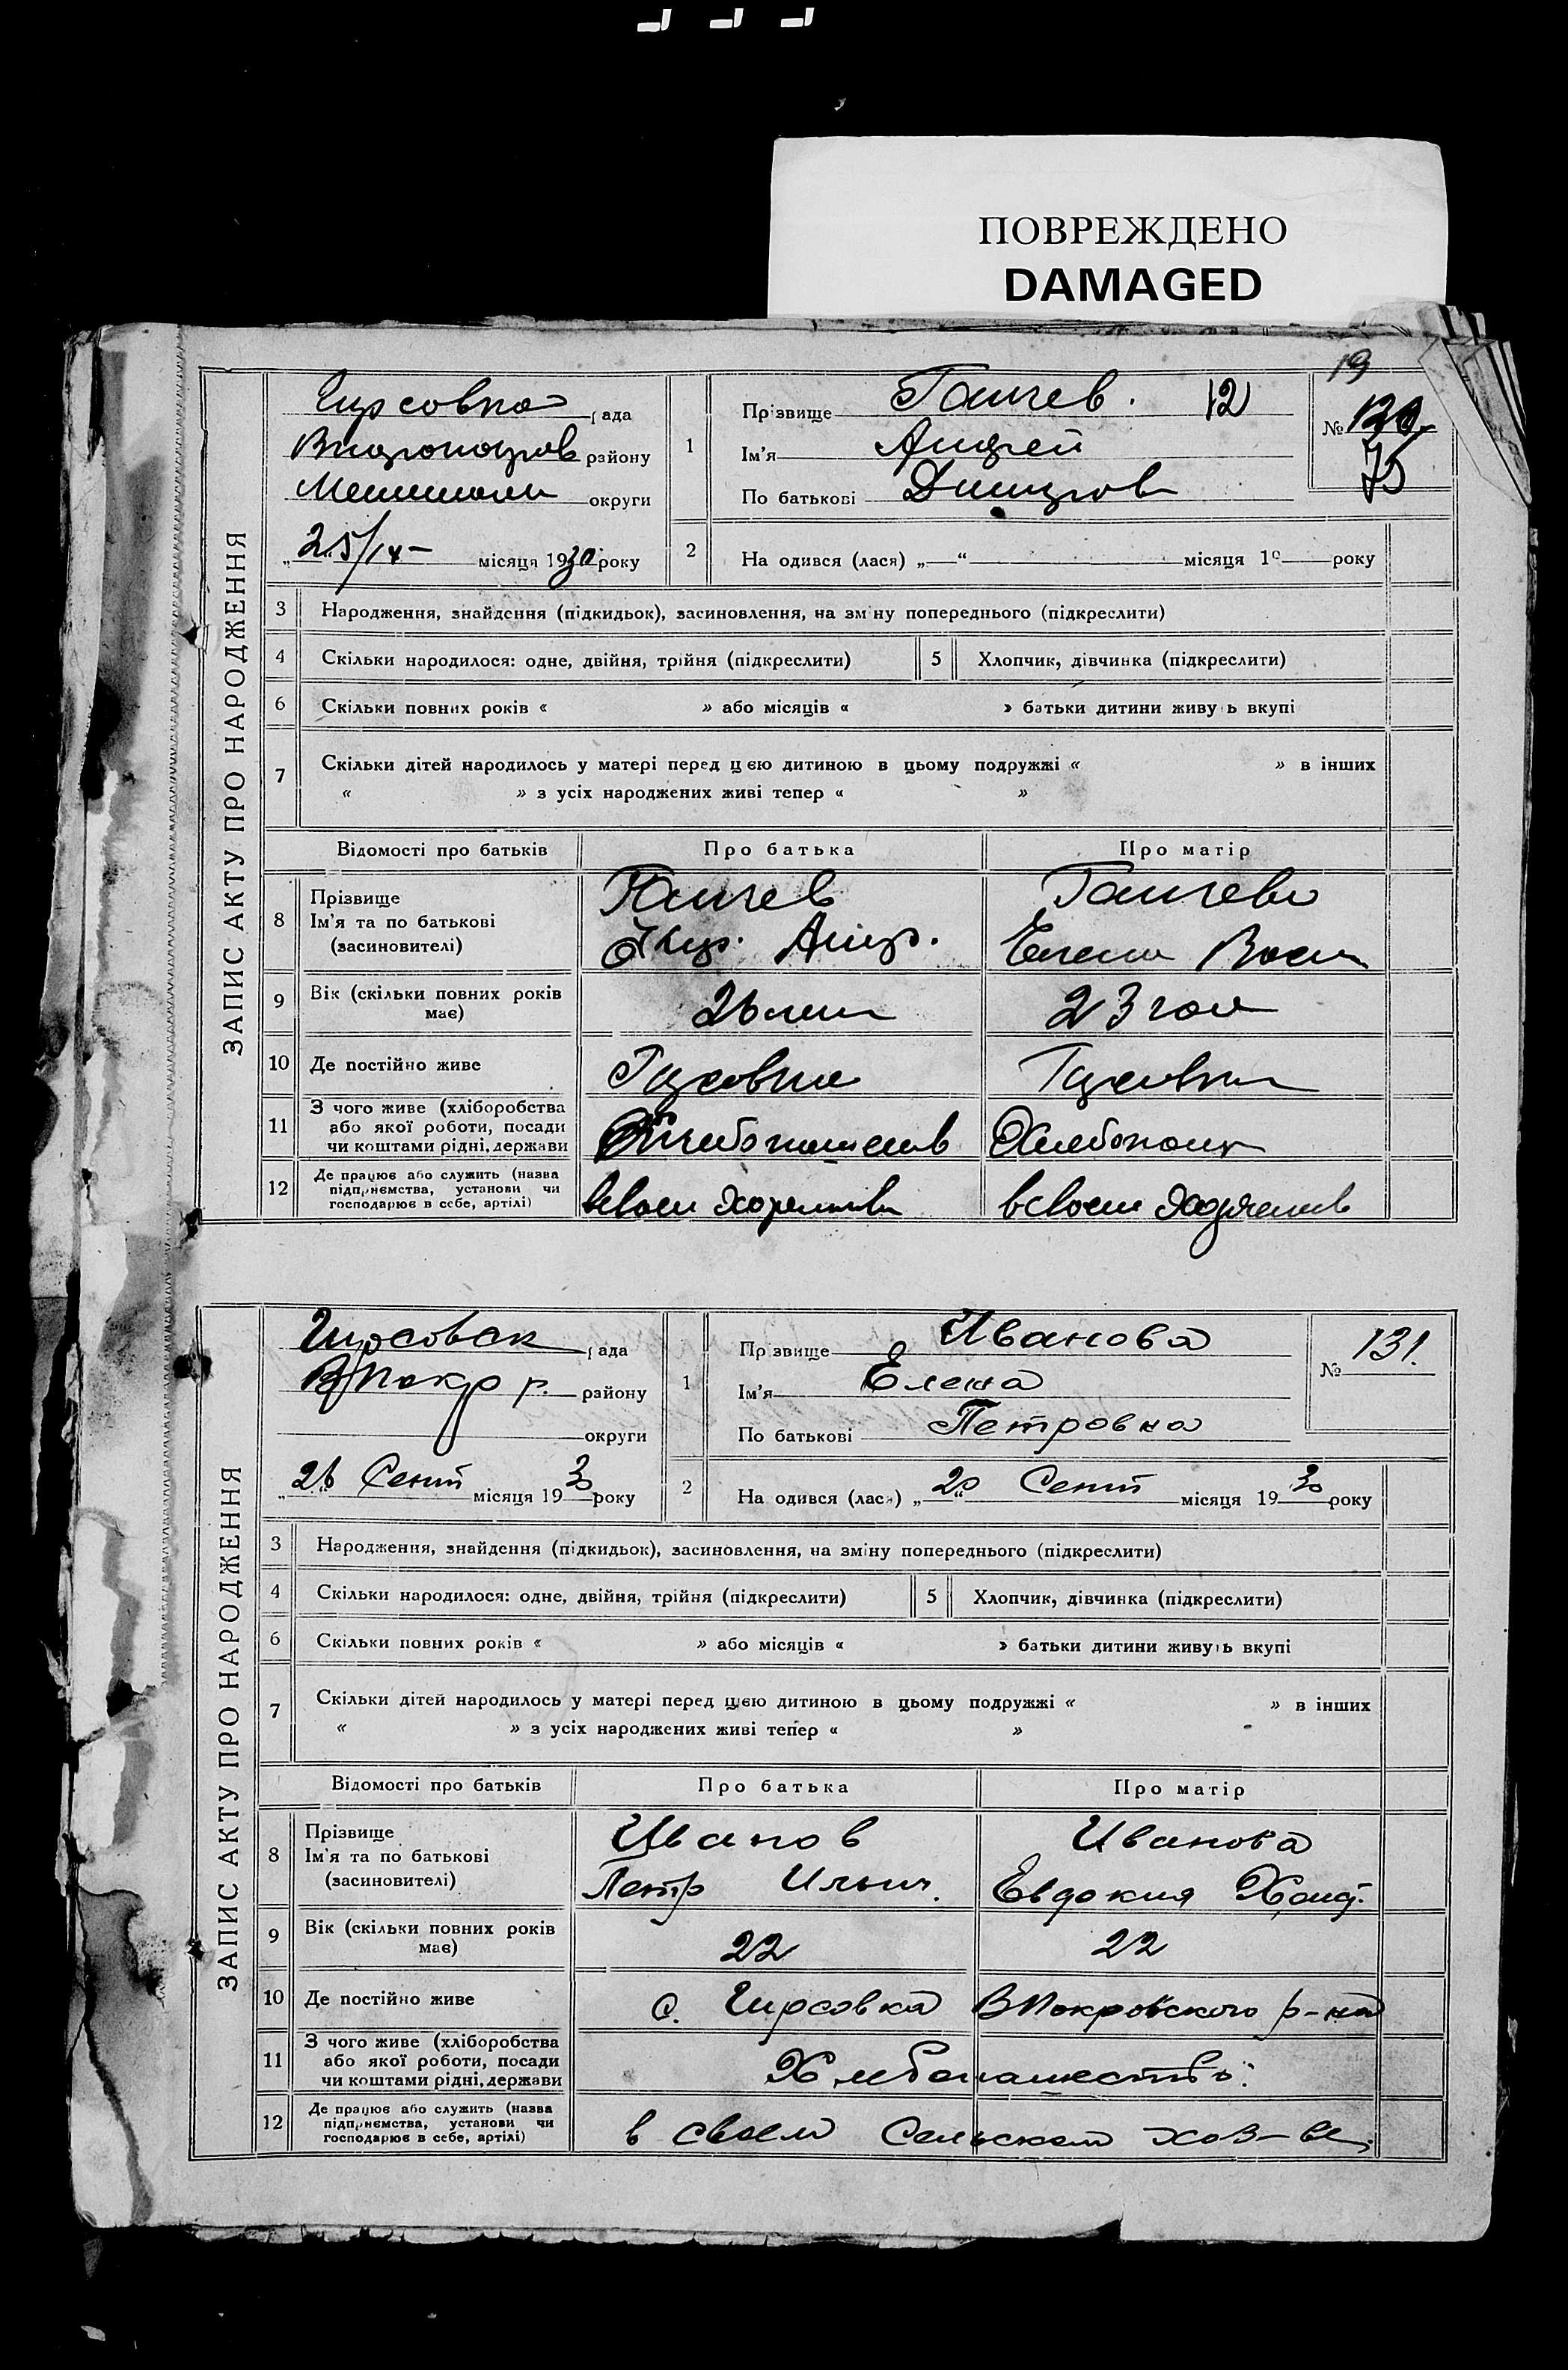 ПОВРЕЖДЕНО
DAMAGED
19
ЗАПИС АКТУ ПРО НАРОДЖЕННЯ
Гирсовка рада
району
округи
„25/IX- місяця 1930 року
1
Прізвище Ганчев. 12
Ім'я Андрей
По батькові Дмитров
№ 130
75
2 На одився (лася) „ “ місяця 19 року
3 Народження, знайдення (підкидьок), засиновлення, на зміну попереднього (підкреслити)
4 Скільки народилося: одне, двійня, трійня (підкреслити) 5 Хлопчик, дівчинка (підкреслити)
6 Скільки повних років « » або місяців « » батьки дитини живуть вкупі
7 Скільки дітей народилось у матері перед цією дитиною в цьому подружжі « » в інших
« » з усіх народжених живі тепер « »
Відомості про батьків Про батька Про матір
8 Прізвище
Ім'я та по батькові
(засиновителі)
Ганчев
Андр.
Ганчева
Елена Васи
9 Вік (скільки повних років має) 26 лет 23 года
10 Де постійно живе Гирсовка Гирсовка
11 З чого живе (хліборобства
або якої роботи, посади
чи коштами рідні, держави
12 Де працює або служить (назва
підприємства, установи чи
господарює в себе, артілі)
в своем в своем
ЗАПИС АКТУ ПРО НАРОДЖЕННЯ
Гирсовск рада
ВПокр р. району
округи
„26 Сент місяця 1930 року
1
Прізвище Иванова
Ім'я Елена
По батькові Петровна
№ 131.
2 На одився (лася) „20“ Сент місяця 1930 року
3 Народження, знайдення (підкидьок), засиновлення, на зміну попереднього (підкреслити)
4 Скільки народилося: одне, двійня, трійня (підкреслити) 5 Хлопчик, дівчинка (підкреслити)
6 Скільки повних років « » або місяців « » батьки дитини живуть вкупі
7 Скільки дітей народилось у матері перед цією дитиною в цьому подружжі « » в інших
« » з усіх народжених живі тепер « »
Відомості про батьків Про батька Про матір
8 Прізвище
Ім'я та по батькові
(засиновителі)
Иванов
Петр Ильич.
Иванова
Евдокия
9 Вік (скільки повних років має) 22 22
10 Де постійно живе с. Гирсовка ВПокровского р-на
11 З чого живе (хліборобства
або якої роботи, посади
чи коштами рідні, держави
Хлебопашество.
12 Де працює або служить (назва
підприємства, установи чи
господарює в себе, артілі)
в своем сельском хоз-ве.